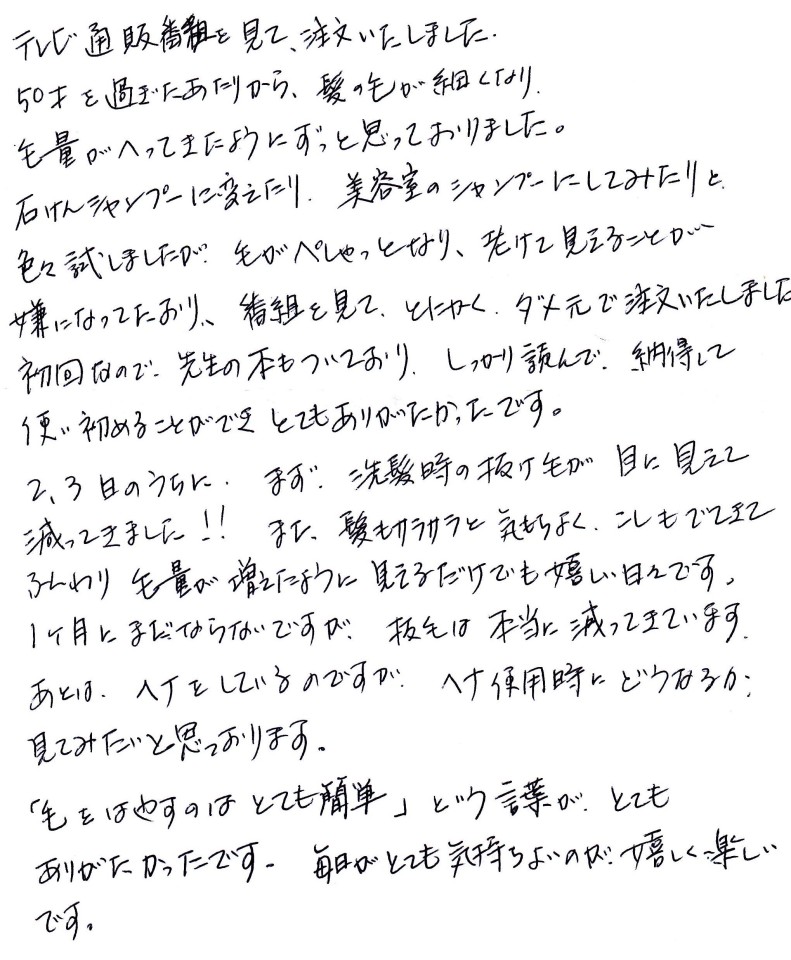 テレビ通販番組を見て、注文いたしました.
50才を過ぎたあたりから、髪の毛が細くなり.
毛量がへってきたようにずっと思っておりました。
石けんシャンプーに変えたり. 美容室のシャンプーにしてみたりと.
色々試しましたが. 毛がペしゃっとなり、老けて見えることが
嫌になってたおり、番組を見て. とにかく. ダメ元で注文いたしました
初回なので. 先生の本もついており. しっかり読んで. 納得して
使い初めることができ とてもありがたかったです。
2、3日のうちに. まず. 洗髪時の抜け毛が 目に見えて
減ってきました!! また、髪もサラサラと 気もちよく. こしもでてきて
ふんわり 毛量が 増えたように 見えるだけでも嬉しい日々です。
1ヶ月にまだならないですが. 抜毛は 本当に減ってきています.
あとは. ヘナをしているのですが. ヘナ使用時に どうなるか.
見てみたいと思っております。
「毛をはやすのは とても簡単」という言葉が. とても
ありがたかったです。 毎日がとても気持ちよいのが. 嬉しく楽しい
です。